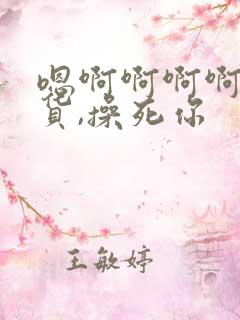 嗯啊啊啊啊
贝,操死你
王敏婷